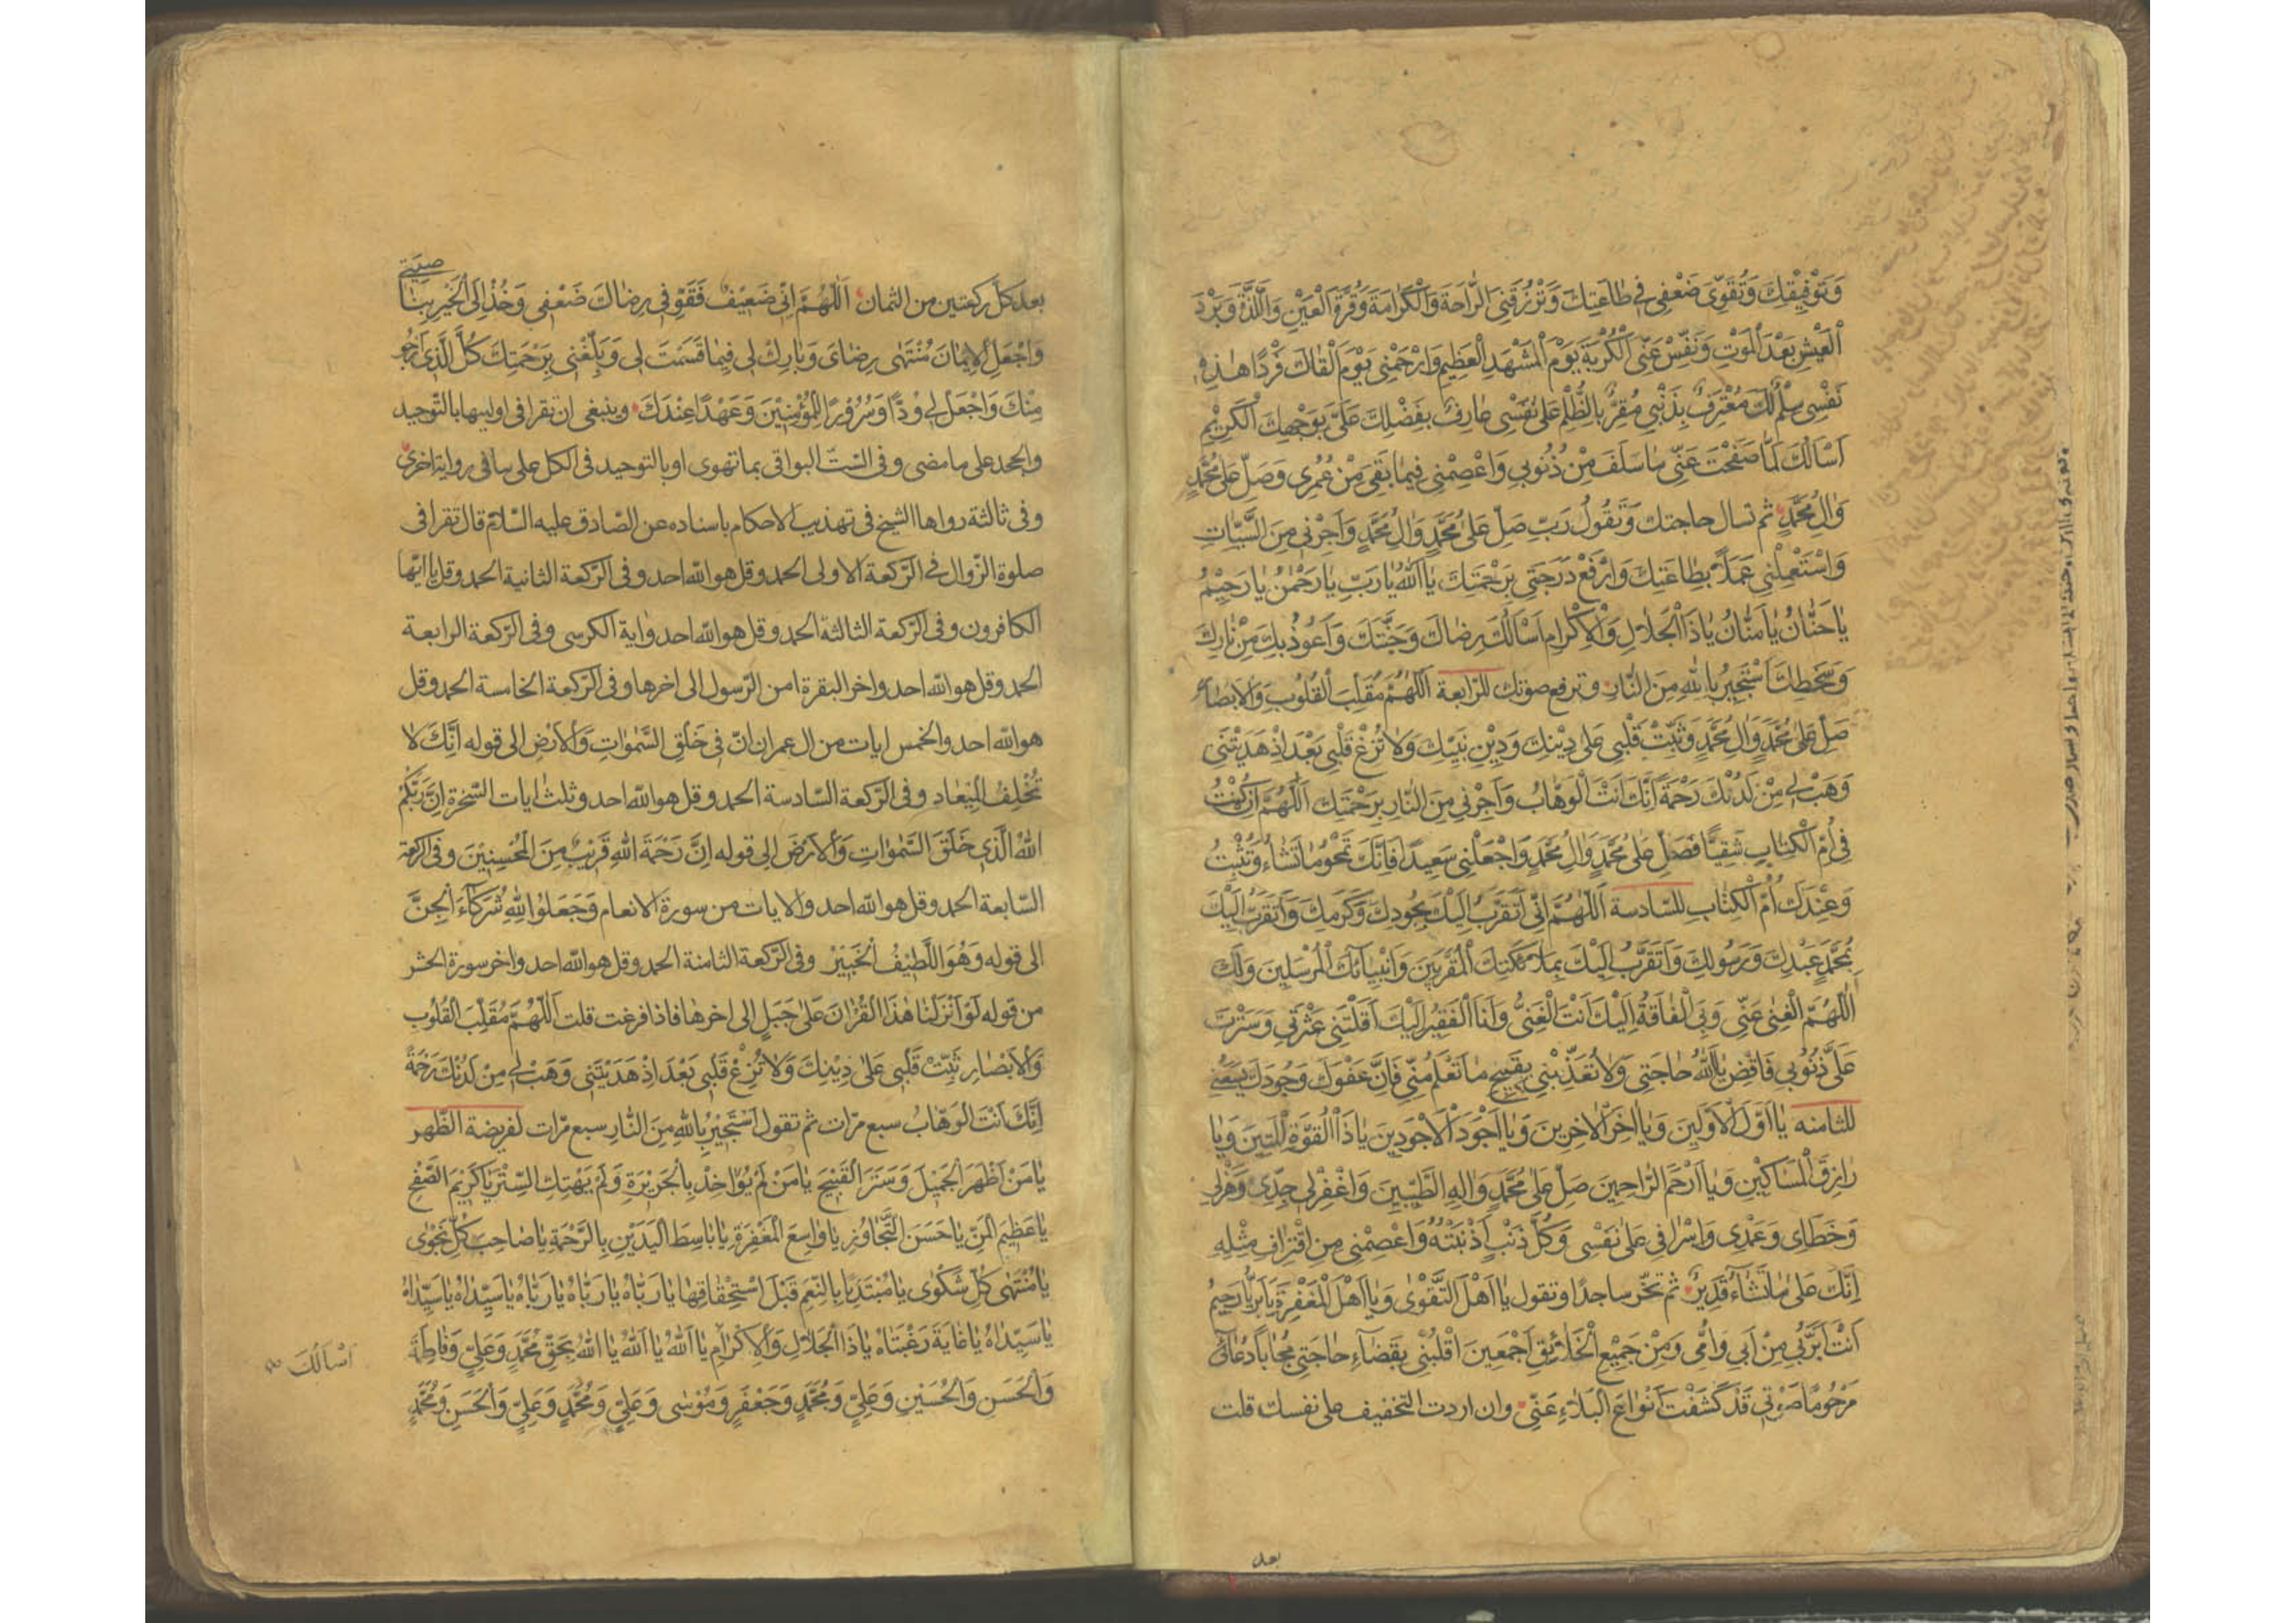 وَتَوْفِيْقِكَ وَتُقَوِّىَ ضَعْفِى فِى طَاعَتِكَ وَتَرْزُقَنِى الرَّاحَةَ وَالْكَرَامَةَ وَقُرَّةَ الْعَيْنِ وَاللَّذَّةَ وَبَرْدَ
الْعَيْشِ بَعْدَ الْمَوْتِ وَنَفِّسْ عَنِّى الْكُرْبَةَ يَوْمَ الْمَشْهَدِ الْعَظِيمِ وَارْحَمْنِى يَوْمَ الْقَاكَ فَرْدًا هٰذِهِ
نَفْسِى سِلْمٌ لَكَ مُعْتَرِفٌ بِذَنْبِى مُقِرٌّ بِالظُّلْمِ عَلٰى نَفْسِى عَارِفٌ بِفَضْلِكَ عَلَىَّ بِوَجْهِكَ الْكَرِيْمِ
اَسْاَلُكَ لَمَّا صَفَحْتَ عَنِّى مَا سَلَفَ مِنْ ذُنُوبِى وَاعْصِمْنِى فِيمَا بَقِىَ مِنْ عُمُرِى وَصَلِّ عَلٰى مُحَمَّدٍ
وَاٰلِ مُحَمَّدٍ ثم تسال حاجتك وَتَقُولُ رَبِّ صَلِّ عَلٰى مُحَمَّدٍ وَاٰلِ مُحَمَّدٍ وَاَجِرْنِى مِنَ السَّيِّاٰتِ
وَاسْتَعْمِلْنِى عَمَلاً بِطَاعَتِكَ وَارْفَعْ دَرَجَتِى بِرَحْمَتِكَ يَا اَللّٰهُ يَا رَبِّ يَا رَحْمٰنُ يَا رَحِيْمُ
يَا حَنَّانُ يَا مَنَّانُ يَا ذَا الْجَلَالِ وَالْاِكْرَامِ اَسْاَلُكَ رِضَاكَ وَجَنَّتَكَ وَاَعُوذُ بِكَ مِنْ نَارِكَ
وَسَخَطِكَ اَسْتَجِيرُ بِاللّٰهِ مِنَ النَّارِ وترفع صوتك للرّابعة اَللّٰهُمَّ مُقَلِّبَ الْقُلُوبِ وَالْاَبْصَارِ
صَلِّ عَلٰى مُحَمَّدٍ وَاٰلِ مُحَمَّدٍ وَثَبِّتْ قَلْبِى عَلٰى دِيْنِكَ وَدِيْنِ نَبِيِّكَ وَلَا تُزِغْ قَلْبِى بَعْدَ اِذْ هَدَيْتَنِى
وَهَبْ لِى مِنْ لَدُنْكَ رَحْمَةً اِنَّكَ اَنْتَ الْوَهَّابُ وَاَجِرْنِى مِنَ النَّارِ بِرَحْمَتِكَ اَللّٰهُمَّ اِنْ كُنْتُ
فِى اُمِّ الْكِتَابِ شَقِيًّا فَصَلِّ عَلٰى مُحَمَّدٍ وَاٰلِ مُحَمَّدٍ وَاجْعَلْنِى سَعِيدًا فَاِنَّكَ تَمْحُو مَا تَشَاءُ وَتُثْبِتُ
وَعِنْدَكَ اُمُّ الْكِتَابِ للسّادسة اَللّٰهُمَّ اِنِّى اَتَقَرَّبُ اِلَيْكَ بِجُودِكَ وَكَرَمِكَ وَاَتَقَرَّبُ اِلَيْكَ
بِمُحَمَّدٍ عَبْدِكَ وَرَسُولِكَ وَاَتَقَرَّبُ اِلَيْكَ بِمَلَائِكَتِكَ الْمُقَرَّبِينَ وَاَنْبِيَائِكَ الْمُرْسَلِينَ وَلَكَ
اَللّٰهُمَّ الْغِنٰى عَنِّى وَبِىَ الْفَاقَةُ اِلَيْكَ اَنْتَ الْغَنِىُّ وَاَنَا الْفَقِيرُ اِلَيْكَ اَقَلْتَنِى عَثْرَتِى وَسَتَرْتَ
عَلَىَّ ذُنُوبِى فَاقْضِ يَا اَللّٰهُ حَاجَتِى وَلَا تُعَذِّبْنِى بِقَبِيحِ مَا تَعْلَمُ مِنِّى فَاِنَّ عَفْوَكَ وَجُودَكَ يَسَعُنِى
للثامنه يَا اَوَّلَ الْاَوَّلِينَ وَيَا اٰخِرَ الْاٰخِرِينَ وَيَا اَجْوَدَ الْاَجْوَدِينَ يَا ذَا الْقُوَّةِ الْمَتِينَ وَيَا
رَازِقَ الْمَسَاكِيْنِ وَيَا اَرْحَمَ الرَّاحِمِينَ صَلِّ عَلٰى مُحَمَّدٍ وَاٰلِهِ الطَّيِّبِينَ وَاغْفِرْ لِى جِدِّى وَهَزْلِى
وَخَطَاىَ وَعَمْدِى وَاِسْرَافِى عَلٰى نَفْسِى وَكُلَّ ذَنْبٍ اَذْنَبْتُهُ وَاعْصِمْنِى مِنِ اقْتِرَافِ مِثْلِهِ
اِنَّكَ عَلٰى مَا تَشَاءُ قَدِيرٌ ثم تخرّ ساجدًا وتقول يَا اَهْلَ التَّقْوٰى وَيَا اَهْلَ الْمَغْفِرَةِ يَا بَرُّ يَا رَحِيمُ
اَنْتَ اَبَرُّ بِى مِنْ اَبِى وَاُمِّى وَمِنْ جَمِيْعِ الْخَلَائِقِ اَجْمَعِينَ اقْلِبْنِى بِقَضَاءِ حَاجَتِى مُجَابًا دُعَائِى
مَرْحُومًا صَوْتِى قَدْ كَشَفْتَ اَنْوَاعَ الْبَلَاءِ عَنِّى وان اردت التخفيف على نفسك قلت
بعد
بعد كلّ ركعتين من الثمان اَللّٰهُمَّ اِنِّى ضَعِيْفٌ فَقَوِّ فِى رِضَاكَ ضَعْفِى وَخُذْ اِلَى الْخَيْرِ بِنَاصِيَتِى
وَاجْعَلِ الْاِيمَانَ مُنْتَهٰى رِضَاىَ وَبَارِكْ لِى فِيمَا قَسَمْتَ لِى وَبَلِّغْنِى بِرَحْمَتِكَ كُلَّ الَّذِى اَرْجُو
مِنْكَ وَاجْعَلْ لِى وُدًّا وَسُرُورًا لِلْمُؤْمِنِيْنَ وَعَهْدًا عِنْدَكَ وينبغى ان تقرا فى اولييها بالتّوحيد
والجحد على ما مضى وفى السّتّ البواقى بما تهوى او بالتوحيد فى الكل على ما فى رواية اخرى
وفى ثالثة رواها الشيخ فى تهذيب الاحكام باسناده عن الصّادق عليه السّلام قال تقرا فى
صلوة الزّوال فى الرّكعة الاولى الحمد وقل هو اللّه احد وفى الرّكعة الثانية الحمد وقل يا ايّها
الكافرون وفى الرّكعة الثالثة الحمد وقل هو اللّه احد واية الكرسى وفى الرّكعة الرابعة
الحمد وقل هو اللّه احد واخر البقرة امن الرّسول الى اخرها وفى الرّكعة الخامسة الحمد وقل
هو اللّه احد والخمس ايات من ال عمران انّ فِى خَلْقِ السَّمٰوَاتِ وَالْاَرْضِ الى قوله اِنَّكَ لَا
تُخْلِفُ الْمِيْعَادِ وفى الرّكعة السّادسة الحمد وقل هو اللّه احد وثلث ايات السّخرة اِنَّ رَبَّكُمُ
اللّٰهُ الَّذِى خَلَقَ السَّمٰوَاتِ وَالْاَرْضَ الى قوله اِنَّ رَحْمَةَ اللّٰهِ قَرِيْبٌ مِنَ الْمُحْسِنِيْنَ وفى الركعة
السّابعة الحمد وقل هو اللّه احد والايات من سورة الانعام وَجَعَلُوا لِلّٰهِ شُرَكَاءَ الْجِنَّ
الى قوله وَهُوَ اللَّطِيْفُ الْخَبِيْرُ وفى الرّكعة الثامنة الحمد وقل هو اللّه احد واخر سورة الحشر
من قوله لَوْ اَنْزَلْنَا هٰذَا الْقُرْاٰنَ عَلٰى جَبَلٍ الى اخرها فاذا فرغت قلت اَللّٰهُمَّ مُقَلِّبَ الْقُلُوبِ
وَالْاَبْصَارِ ثَبِّتْ قَلْبِى عَلٰى دِيْنِكَ وَلَا تُزِغْ قَلْبِى بَعْدَ اِذْ هَدَيْتَنِى وَهَبْ لِى مِنْ لَدُنْكَ رَحْمَةً
اِنَّكَ اَنْتَ الْوَهَّابُ سبع مرّات ثم تقول اَسْتَجِيْرُ بِاللّٰهِ مِنَ النَّارِ سبع مرّات لفريضة الظّهر
يَا مَنْ اَظْهَرَ الْجَمِيْلَ وَسَتَرَ الْقَبِيْحَ يَا مَنْ لَمْ يُؤَاخِذْ بِالْجَرِيْرَةِ وَلَمْ يَهْتِكِ السِّتْرَ يَا كَرِيْمَ الصَّفْحِ
يَا عَظِيْمَ الْمَنِّ يَا حَسَنَ التَّجَاوُزِ يَا وَاسِعَ الْمَغْفِرَةِ يَا بَاسِطَ الْيَدَيْنِ بِالرَّحْمَةِ يَا صَاحِبَ كُلِّ نَجْوٰى
يَا مُنْتَهٰى كُلِّ شَكْوٰى يَا مُبْتَدِئًا بِالنِّعَمِ قَبْلَ اسْتِحْقَاقِهَا يَا رَبَّاهُ يَا رَبَّاهُ يَا رَبَّاهُ يَا سَيِّدَاهُ يَا سَيِّدَاهُ
يَا سَيِّدَاهُ يَا غَايَةَ رَغْبَتَاهْ يَا ذَا الْجَلَالِ وَالْاِكْرَامِ يَا اَللّٰهُ يَا اَللّٰهُ يَا اَللّٰهُ بِحَقِّ مُحَمَّدٍ وَعَلِىٍّ وَفَاطِمَةَ
اَسْاَلُكَ
وَالْحَسَنِ وَالْحُسَيْنِ وَعَلِىٍّ وَمُحَمَّدٍ وَجَعْفَرٍ وَمُوْسٰى وَعَلِىٍّ وَمُحَمَّدٍ وَعَلِىٍّ وَالْحَسَنِ وَمُحَمَّدٍ